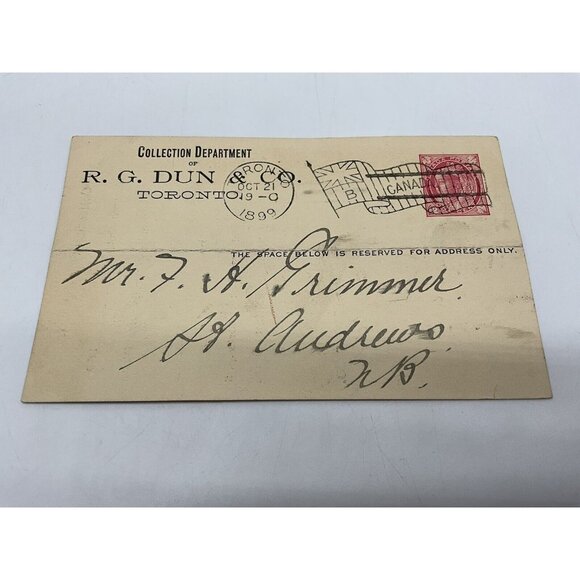 COLLECTION DEPARTMENT
OF
R. G. DUN & CO.
TORONTO
TORONTO
OCT 21
19-0
1899
B
CANADA
THE SPACE BELOW IS RESERVED FOR ADDRESS ONLY.
Mr. F. H. Grimmer
St. Andrews
N.B.